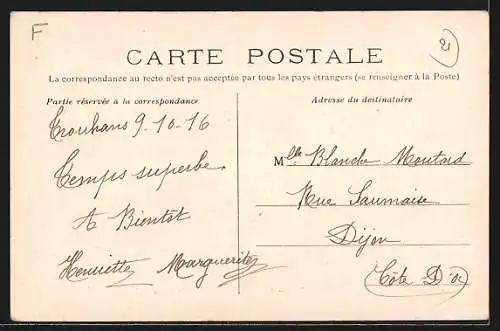 F
21
CARTE POSTALE
La correspondance au recto n'est pas acceptée par tous les pays étrangers (se renseigner à la Poste)
Partie réservée à la correspondance
Trouhans 9-10-16
Temps superbe.
A Bientôt
Henriette Marguerite
Adresse du destinataire
Mlle Blanche Moutard
Rue Saumaise
Dijon
(Côte D'or)